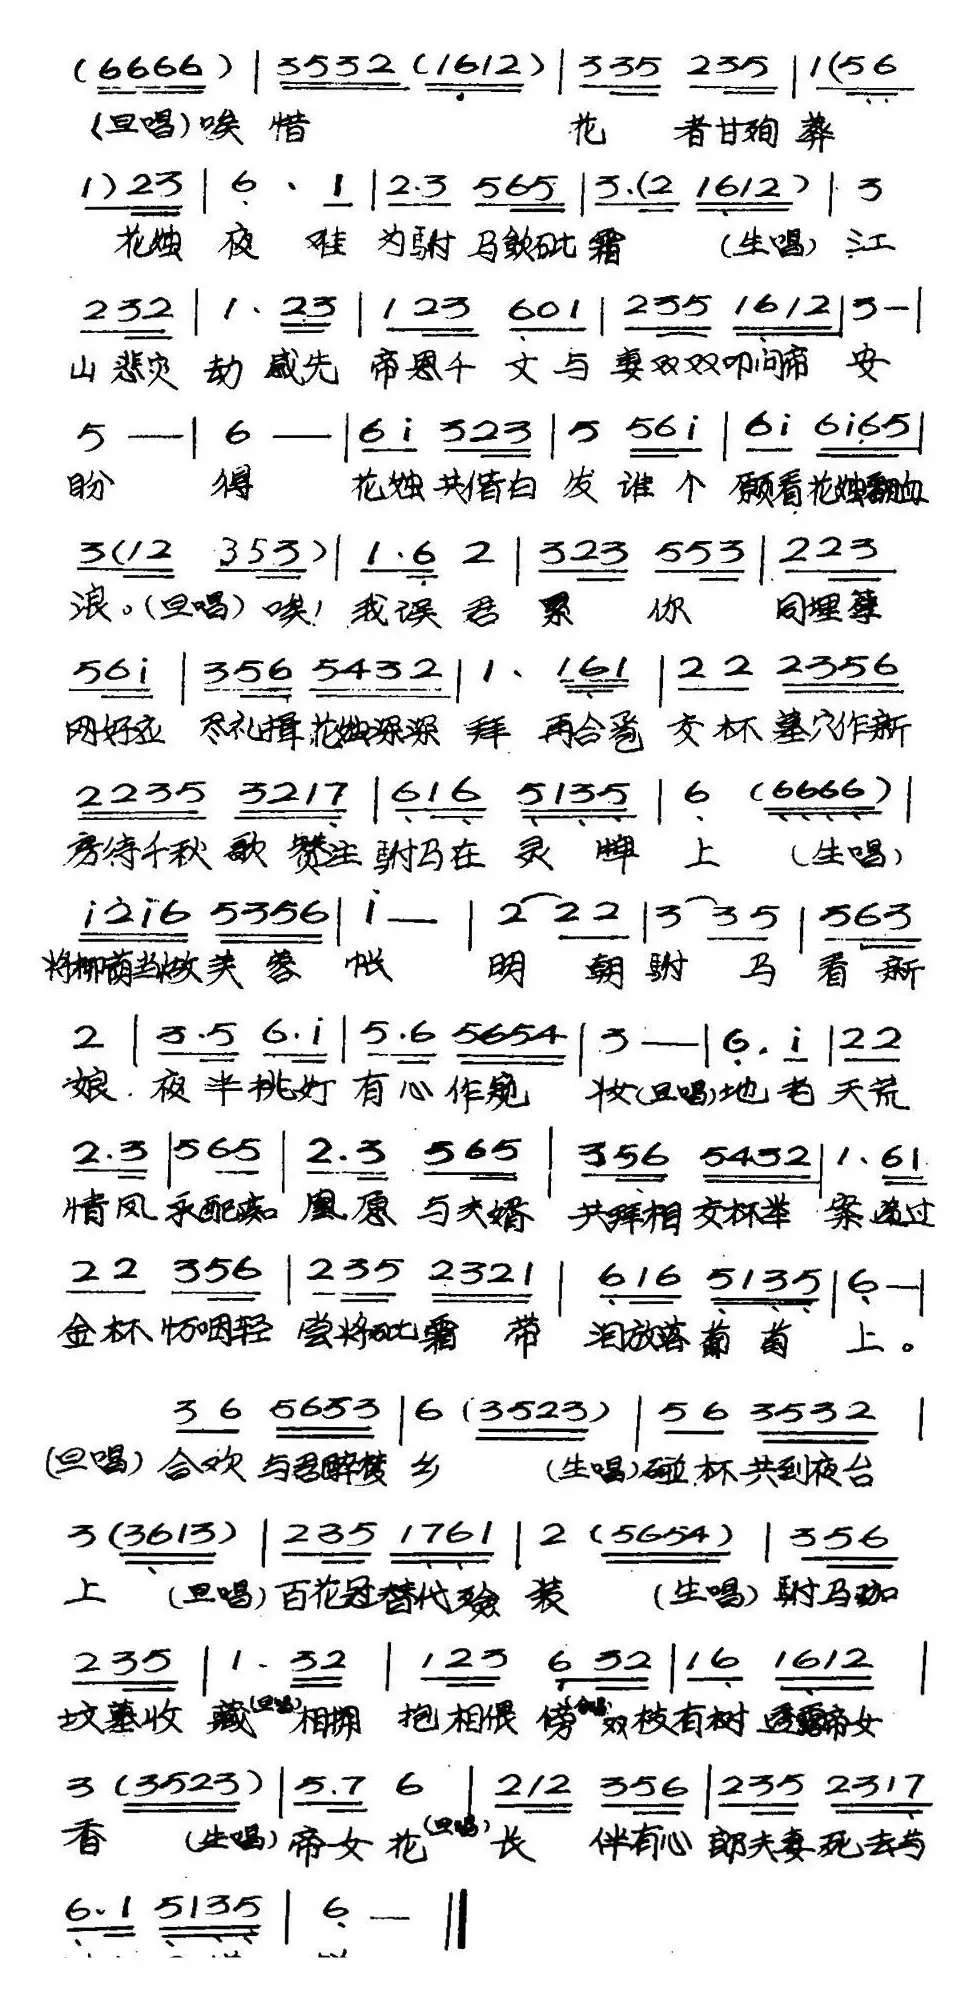 (6666) | 3532 (1612) | 335 235 | 1(56
(旦唱)唉惜 花 者甘殉葬
1) 23 | 6 · 1 | 2·3 565 | 3·(2 1612) | 3
花烛 夜 难 为驸 马飲砒霜 (生唱) 江
232 | 1 · 23 | 123 601 | 235 1612 | 3 — |
山悲灾 劫 感先 帝恩千 丈 与 妻双双叩问帝 安
5 — | 6 — | 6i 323 | 5 56i | 6i 6i65 |
盼 得 花烛共偕白 发 谁 个 愿看花烛翻血
3(12 353) | 1·6 2 | 323 553 | 223
浪。(旦唱) 唉! 我误 君 累 你 同埋孽
56i | 356 5432 | 1 · 161 | 22 2356
网好应 尽礼揖花烛深深 拜 再合卺 交 杯 墓穴作新
2235 3217 | 616 5135 | 6 (6666) |
房待千秋歌 赞注驸马在 灵 牌 上 (生唱)
i2i6 5356 | i — | 2 22 | 3 35 | 563
将柳荫当做芙 蓉 帐 明 朝驸 马 看 新
2 | 3·5 6·i | 5·6 5654 | 3 — | 6· i | 22
娘. 夜 半挑灯 有 心 作窥 妆(旦唱)地 老 天荒
2·3 | 565 | 2·3 565 | 356 5432 | 1· 61
情凤 永配痴 凰 愿 与夫婿 共拜相交杯举 案 递过
22 356 | 235 2321 | 616 5135 | 6 — |
金杯 怀咽轻 尝将砒霜 带 泪放落葡 萄 上 。
36 5653 | 6 (3523) | 56 3532 |
(旦唱) 合欢 与君醉梦 乡 (生唱)碰杯共到夜台
3 (3613) | 235 1761 | 2 (5654) | 356
上 (旦唱) 百花冠替代殓 装 (生唱) 驸马珈
235 | 1 · 32 | 123 6 32 | 16 1612 |
坟墓收 藏(旦唱)相拥 抱相偎 傍(合唱)双枝有树透露帝女
3 (3523) | 5·7 6 | 212 356 | 235 2317
香 (生唱) 帝女 花(旦唱) 长 伴有心 郎夫妻死去与
6·1 5135 | 6 — ‖